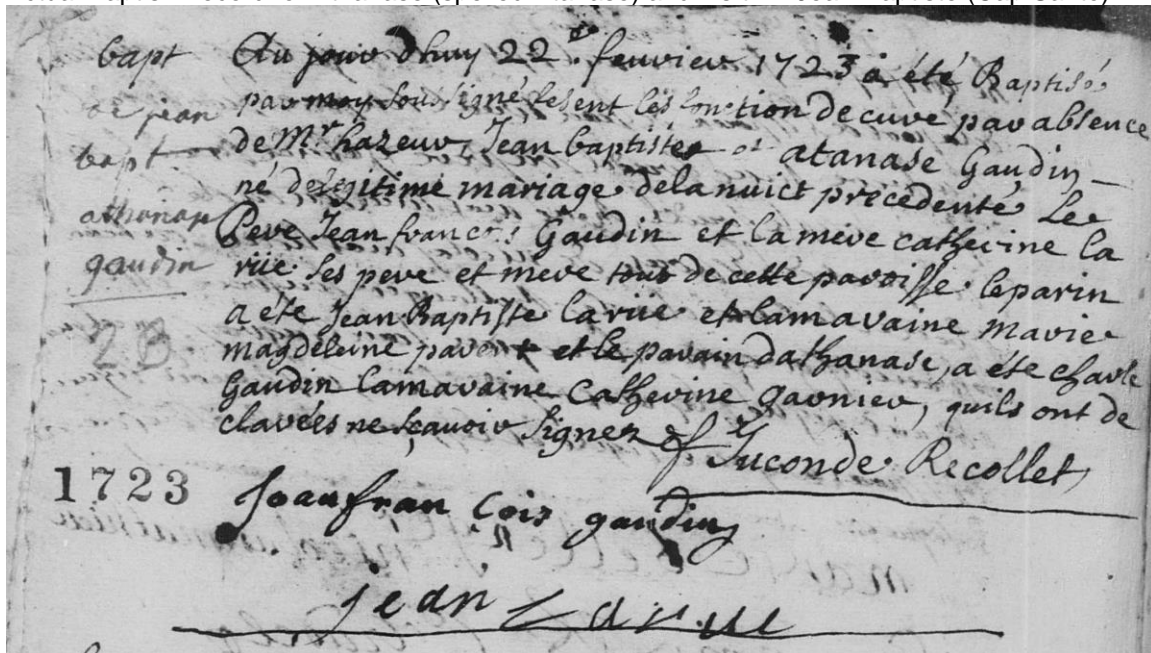 bapt
de jean
bapt
athanas
gaudin
Au jourd huy 22e feuvier 1723 a été Baptisé
par moy soussigné fesent les fonction de cure par absence
de Mr hazeur, Jean baptiste et atanase Gaudin
né de legitime mariage de la nuict precedente Le
Pere Jean francois Gaudin et la mere catherine la
rüe ses pere et mere tous de cette paroisse le parin
a éte Jean Baptiste la rüe et la maraine marie
magdeleine et le parain dathanase, a éte charle
Gaudin la maraine Catherine garnier, quils ont de
clarées ne sçauoir signer
f Juconde Recollet
1723
Jean fran cois gaudin
jean Larue